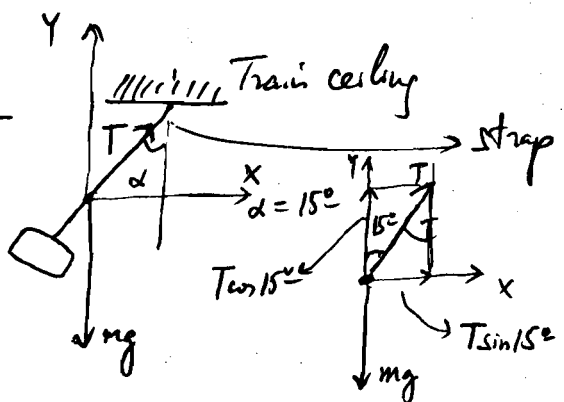 Y
Train ceiling
T
strap
α
X
α = 15°
mg
Y
T
15°
T cos 15°
X
T sin 15°
mg